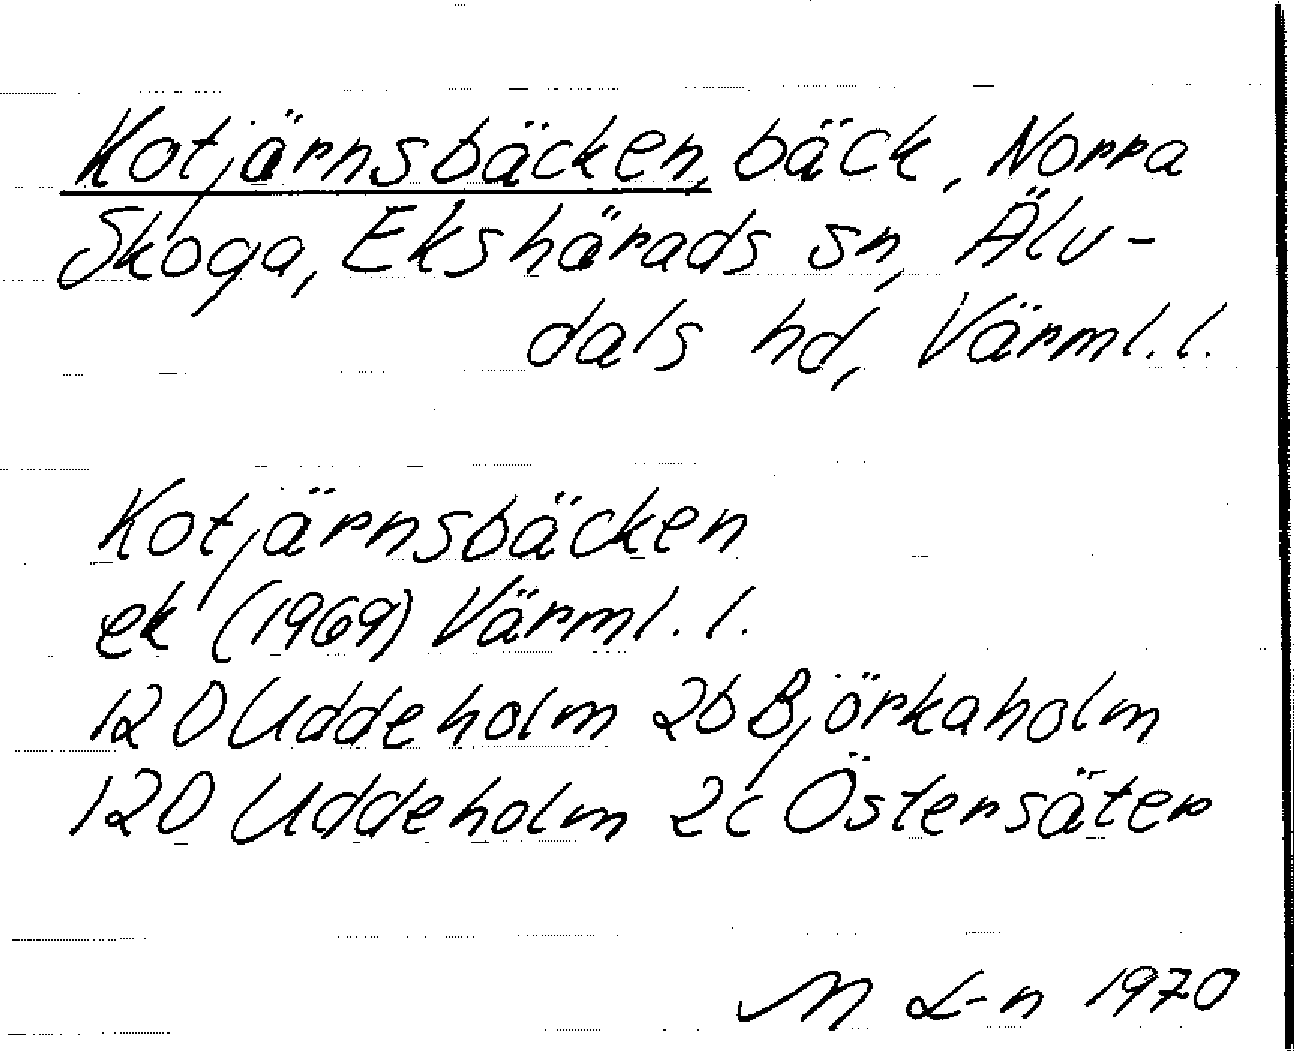 Kotjärnsbäcken, bäck, Norra
Skoga, Ekshärads sn, Älv-
dals hd, Värml. l.
Kotjärnsbäcken
ek (1969) Värml. l.
12D Uddeholm 2b Björkaholm
12D Uddeholm 2c Östersäter
M L-n 1970